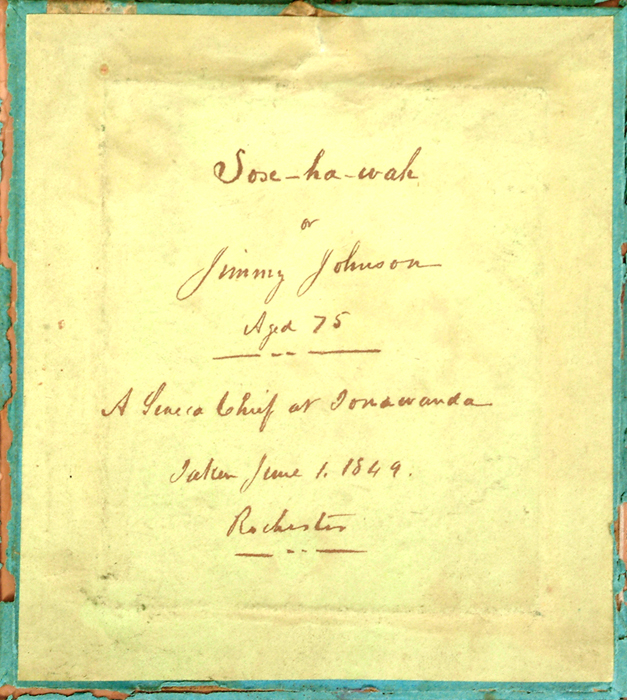 Sose-ha-wah
or
Jimmy Johnson
Aged 75
A Seneca Chief at Tonawanda
Taken June 1. 1849.
Rochester